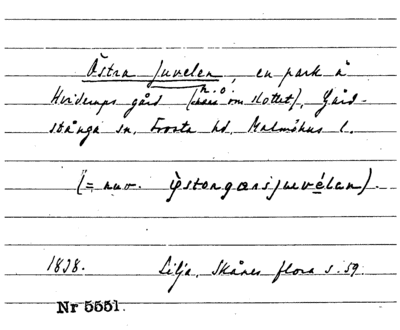 Östra Juvelen, en park å
Hviderups gård (n.o. om slottet), Gård-
stånga sn, Frosta hd, Malmöhus l.
(= nuv. östangarsjuvélan).
1838. Lilja, Skånes flora s. 59.
Nr 5551.